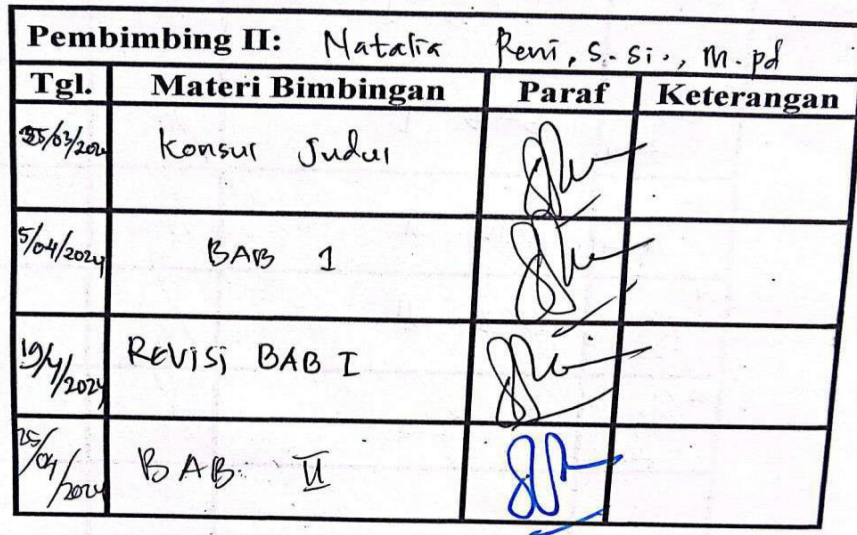 Pembimbing II: Natalia Reni, S.Si., M.pd
Tgl. Materi Bimbingan Paraf Keterangan
25/03/2024 Konsul Judul
5/04/2024 BAB 1
19/4/2024 REVISI BAB I
25/04/2024 BAB II